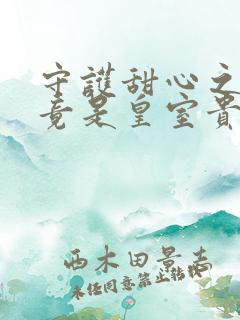 守護甜心之
竟是皇室貴
西木田景志
未经同意禁止转载